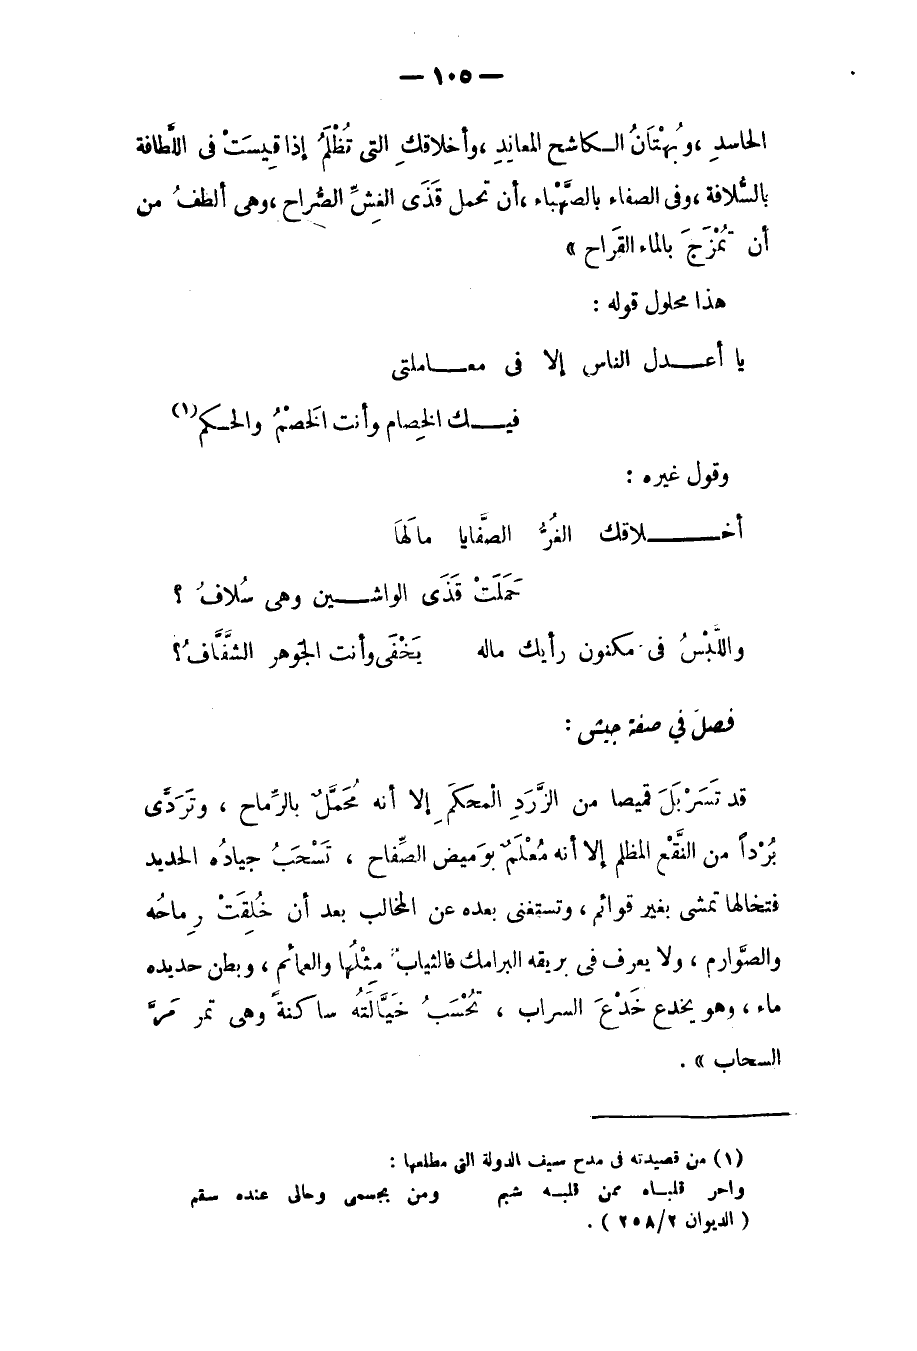 — ١٠٥ —
الحاسدِ ، وبُهْتَانُ الكاشح المعانِدِ ، وأخلاقكِ التى تُظْلَمُ إذا قِيسَتْ فى اللَّطافة
بالسُّلافة ، وفى الصفاء بالصَّهْباء ، أن تحمل قَذَى الغِشِّ الصُّراح ، وهى ألطفُ من
أن تُمْزَجَ بالماء القَراح »
هذا محلول قوله :
يا أعــدل الناسِ إلا فى معــاملتى
فيــك الخِصام وأنت الخَصْمُ والحكم (١)
وقول غيره :
أخــلاقك الغُرُّ الصَّفايا مالَهَا
حَمَلَتْ قَذَى الواشــين وهى سُلافُ ؟
واللَّبْسُ فى مكنون رأيك ماله يَخْفَى وأنت الجوهر الشَّفَّافُ ؟
فصل في صفة جيش :
قد تَسَرْبَلَ قميصا من الزَّرَدِ الْمحكَمِ إلا أنه مُحَمَّلٌ بالرِّماح ، وتَرَدَّى
بُرْداً من النَّقْعِ المظلم إلا أنه مُعْلَمٌ بوَميض الصِّفاح ، تَسْحَبُ جيادُه الحديد
فتخالها تمشى بغير قوائم ، وتستغنى بعده عن المخالب بعد أن خُلِقَتْ رِماحُه
والصَّوارم ، ولا يعرف فى بريقه البرامك فالثيابُ مِثْلُها والعمائم ، وبطن حديده
ماء ، وهو يخدع خَدْعَ السراب ، تُحْسَبُ خَيَّالَتُه ساكنةً وهى تمر مَرَّ
السحاب » .
(١) من قصيدته فى مدح سيف الدولة التى مطلعها :
واحر قلبــاه ممن قلبــه شبم ومن بجسمى وحالى عنده سقم
( الديوان ٢/٢٥٨ ) .